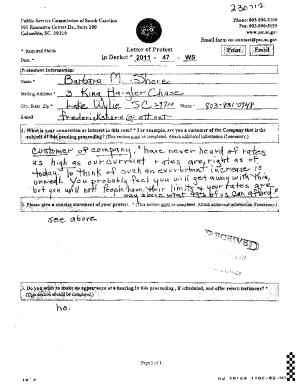 230712
Public Service Commission of South Carolina
101 Executive Center Dr., Suite 100
Columbia, SC 29210
Phone: 803-896-5100
Fax: 803-896-5199
www.psc.sc.gov
Email form to: contact@psc.sc.gov
* Required Fields
Letter of Protest
Print Email
Date: *
In Docket * 2011 - 47 - WS
Protestant Information:
Name * Barbara M. Shore
Mailing Address * 3 King Haigler Chase
City, State Zip * Lake Wylie SC 29710 Phone * 803-831-0748
E-mail Frederickshore@att.net
1. What is your connection or interest in this case? * For example, are you a customer of the Company that is the
subject of this pending proceeding? (This section must be completed. Attach additional information if necessary.)
Customer of company. have never heard of rates
as high as our current rates are, right as of
today. To think of such an exorbitant increase is
unreal. You probably feel you will get away with this,
but you will not! People have their limits & your rates are
way above what 99% of us can afford.
2. Please give a concise statement of your protest. * (This section must be completed. Attach additional information if necessary.)
see above
RECEIVED
3. Do you wish to make an appearance at a hearing in this proceeding, if scheduled, and offer sworn testimony? *
(This section must be completed.)
no.
Page 1 of 1